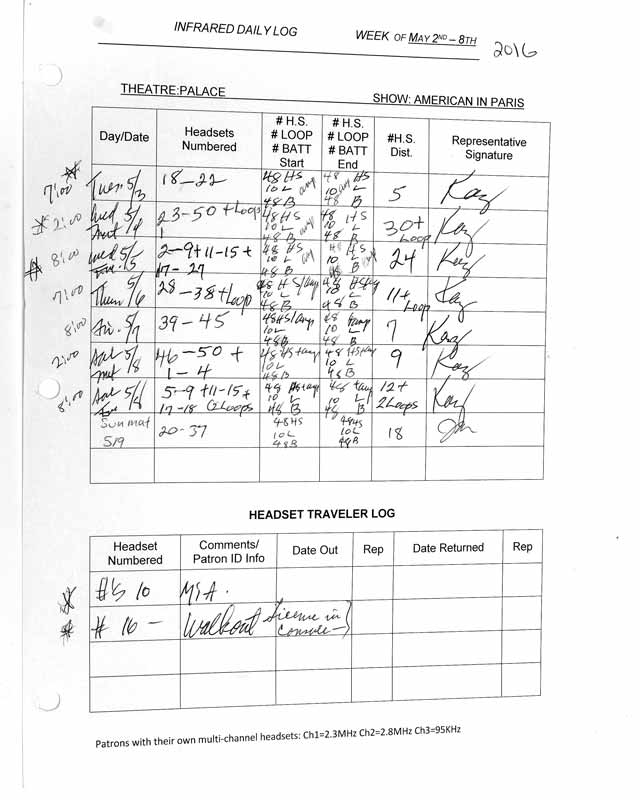 INFRARED DAILY LOG
WEEK OF MAY 2ND – 8TH
2016
THEATRE:PALACE
SHOW: AMERICAN IN PARIS
Day/Date
Headsets Numbered
# H.S. # LOOP # BATT Start
# H.S. # LOOP # BATT End
#H.S. Dist.
Representative Signature
7:00 Tues. 5/3 18-22 48 HS amp 10 L 48 B 48 HS amp 10 L 48 B 5 Kay
2:00 Wed 5/4 mat 23-50 + Loop 1 48 HS 10 L amp 48 B 48 HS 10 L 48 B 30 + Loop Kay
8:00 Wed 5/5 2-9+11-15+ 17-27 48 HS 10 L amp 48 B 48 HS 10 L 48 B 24 Kay
7:00 Thur 5/6 28-38+Loop 48 HS/amp 10 L 48 B 48 HS/amp 10 L 48 B 11+ Loop Kay
8:00 Fri. 5/7 39-45 48HS/amp 10L 48B 48 amp 10L 48B 7 Kay
2:00 Sat 5/8 mat 46-50 + 1-4 48 HS+amp 10L 48B 48 HS+amp 10 L 48 B 9 Kay
8:00 Sat 5/8 5-9+11-15+ 17-18 2 Loops 48 HS+amp 10 L 48 B 48 +amp 10 L 48 B 12+ 2 Loops Kay
Sun mat 5/9 20-37 48HS 10L 48B 48HS 10L 48B 18
HEADSET TRAVELER LOG
Headset Numbered
Comments/ Patron ID Info
Date Out
Rep
Date Returned
Rep
#'s 10 MIA.
# 16 - Walkout License in Console
Patrons with their own multi-channel headsets: Ch1=2.3MHz Ch2=2.8MHz Ch3=95KHz